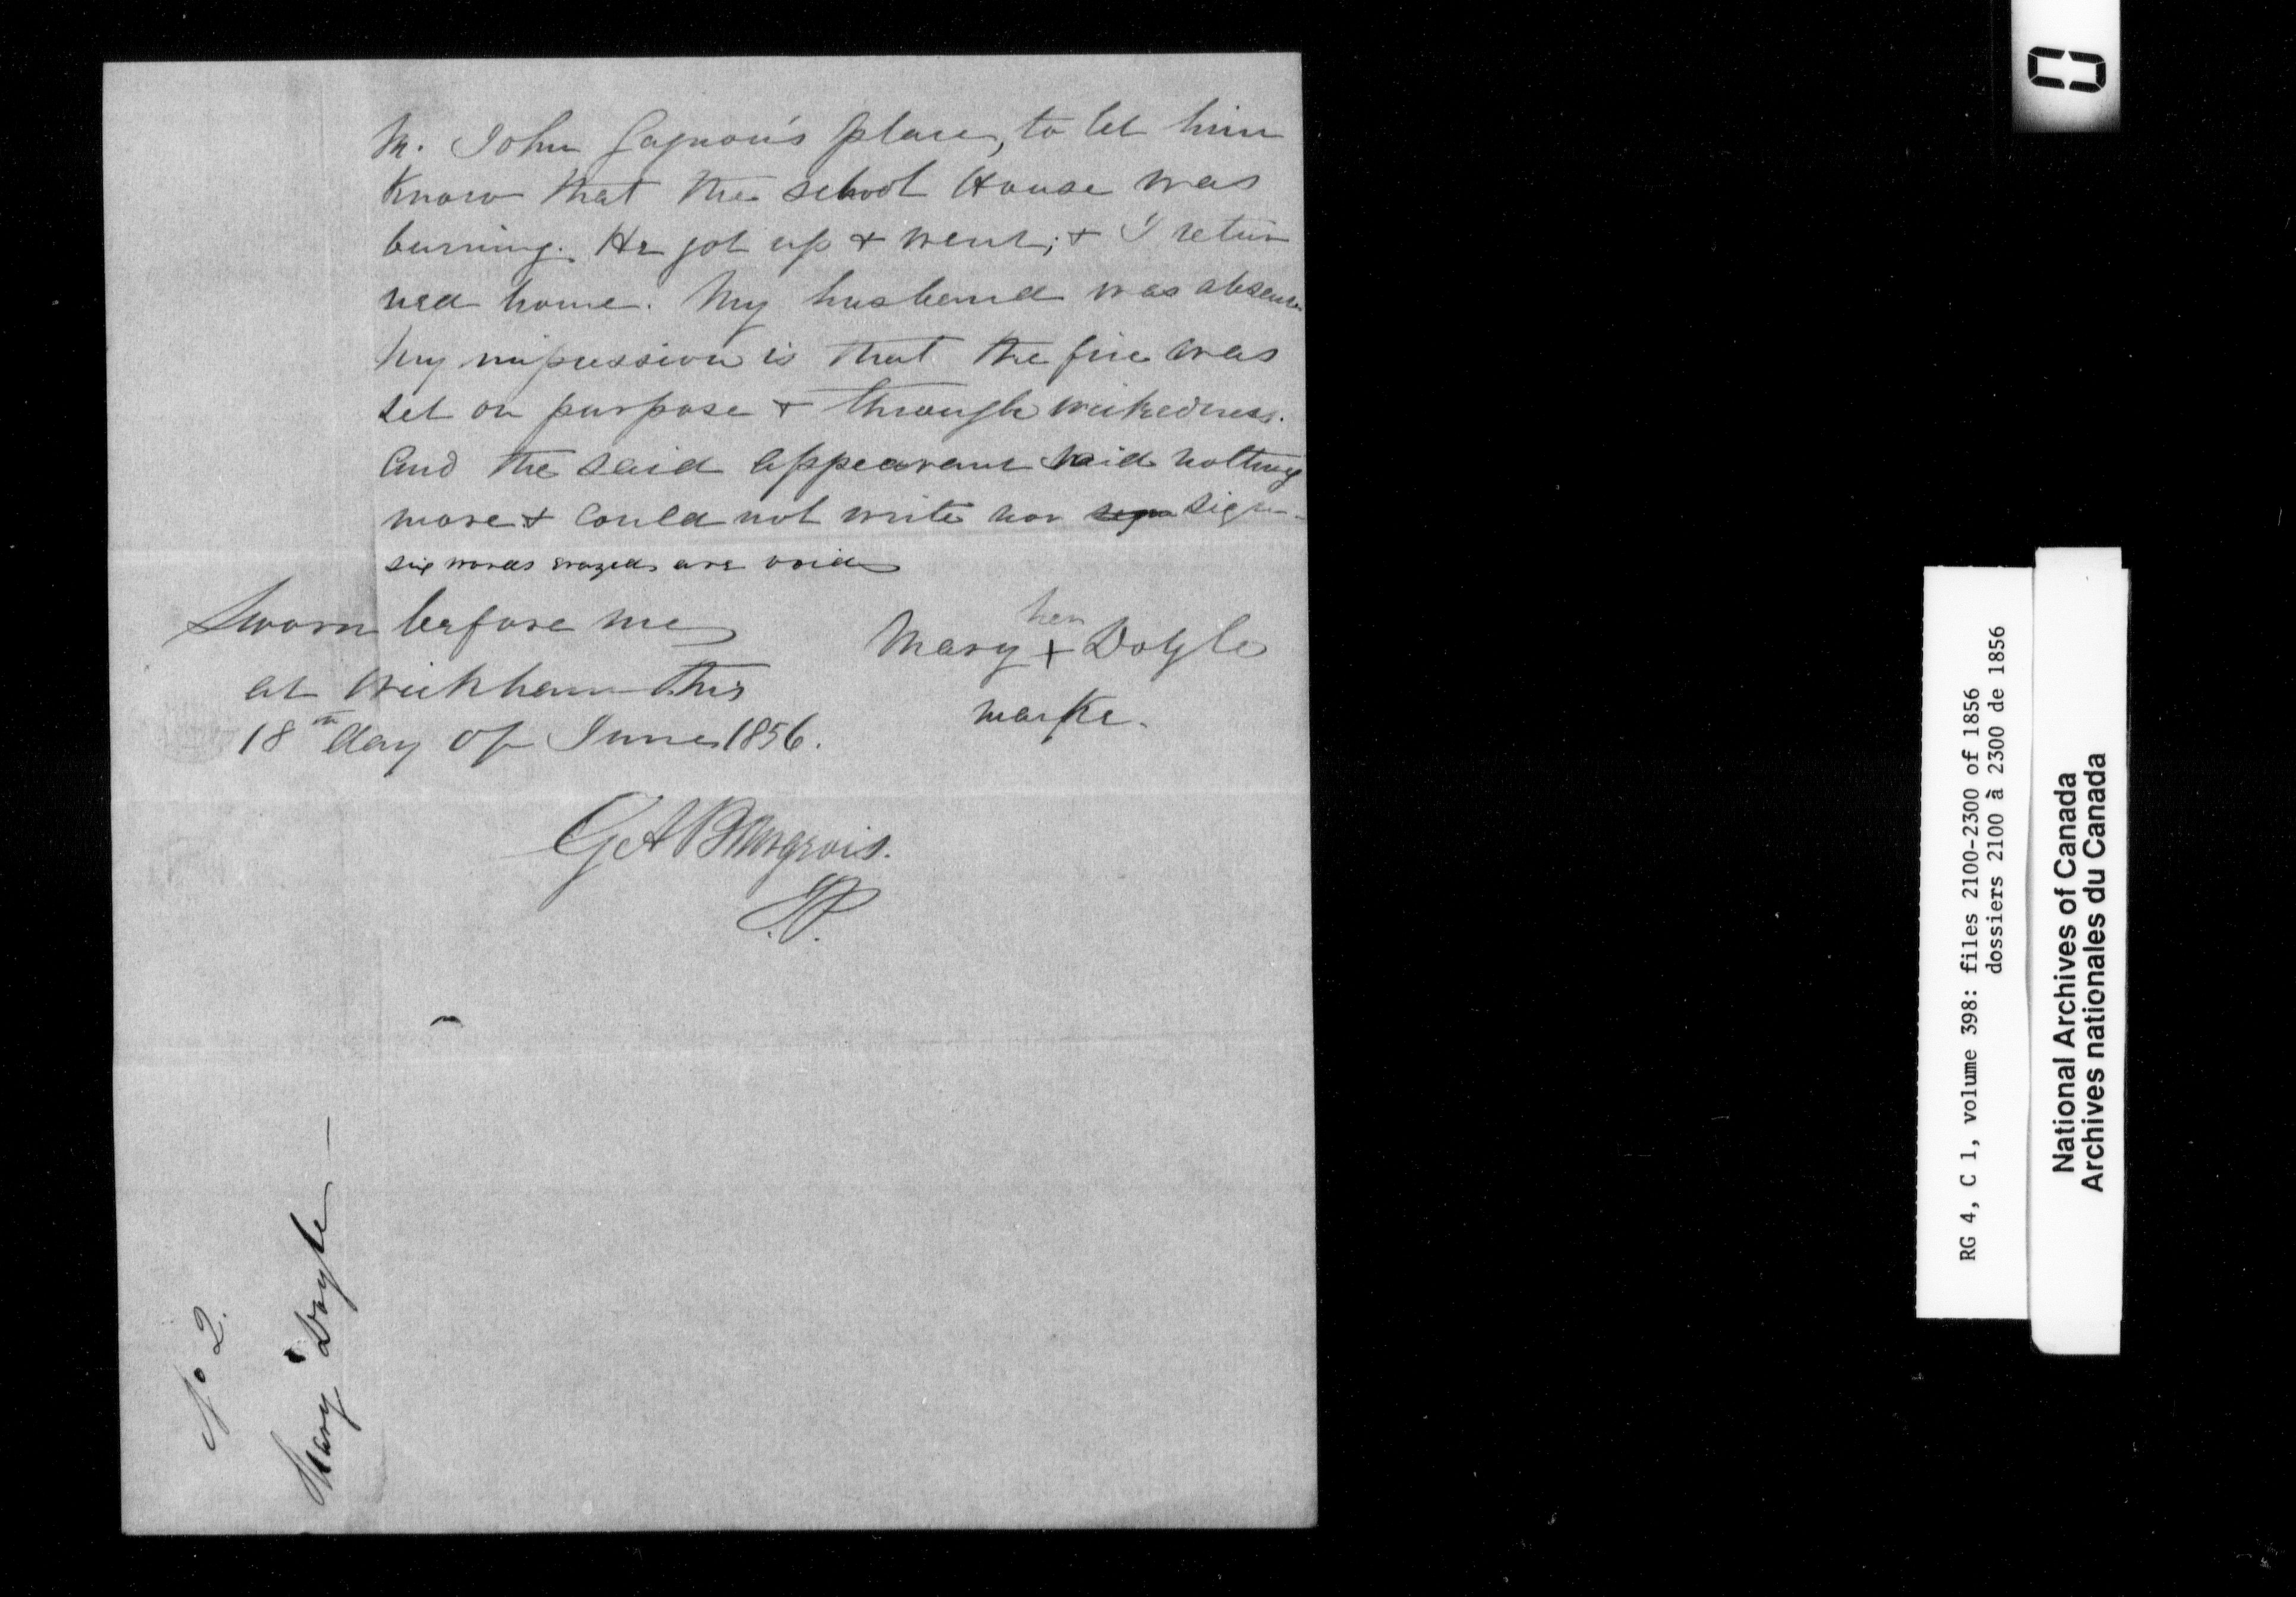 M. John Gagnon's place, to let him
Know that the school House was
burning. He got up & went; & I retur
ned home. My husband was absent.
My impression is that the fire was
set on purpose & through wickedness.
And the said appearant said nothing
more & could not write nor sign sign.
six words erazed are void
Sworn before me
at Wickham this
18th day of June 1856.
her
Mary + Doyle
marke.
G A Bourgeois.
J.P.
No 2.
Mary Doyle
RG 4, C 1, volume 398: files 2100-2300 of 1856
dossiers 2100 à 2300 de 1856
National Archives of Canada
Archives nationales du Canada